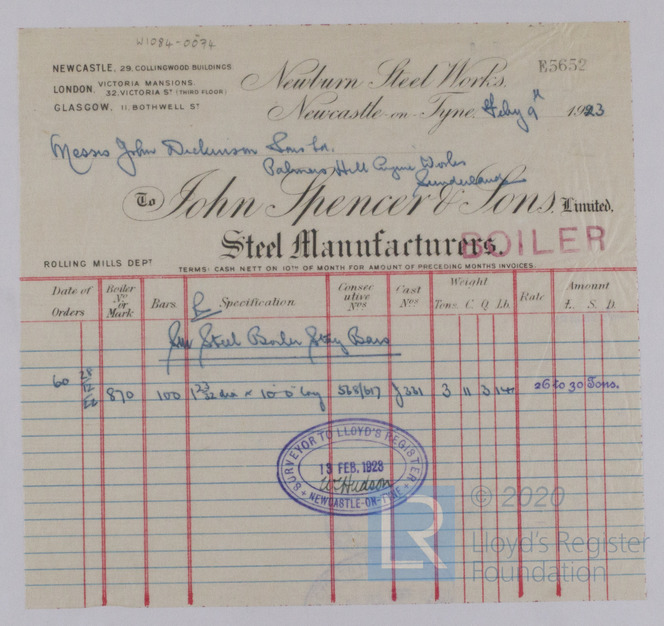 W1084-0094
NEWCASTLE, 29, COLLINGWOOD BUILDINGS.
LONDON, VICTORIA MANSIONS. 32, VICTORIA ST (THIRD FLOOR)
GLASGOW, 11, BOTHWELL ST
Newburn Steel Works.
E5652
Newcastle-on-Tyne, Feby 9th 1923
Messrs John Dickinson Sons Ld.
Palmers Hill Engine Works
Sunderland
To John Spencer & Sons, Limited,
Steel Manufacturers.
BOILER
ROLLING MILLS DEPT
TERMS: CASH NETT ON 10TH OF MONTH FOR AMOUNT OF PRECEDING MONTHS INVOICES.
Date of Orders Boiler No or Mark Bars. Specification Consecutive Nos Cast Nos Weight Tons. C. Q. Lb. Rate Amount £. S. D.
Steel Boiler Stay Bars
60 28/12/22 870 100 1 23/32 dia x 10'0" long 568/617 J331 3 11 3 14 26 to 30 Tons.
SURVEYOR TO LLOYD'S REGISTER
13 FEB. 1923
W Hudson
NEWCASTLE-ON-TYNE
LR
© 2020
Lloyd's Register
Foundation